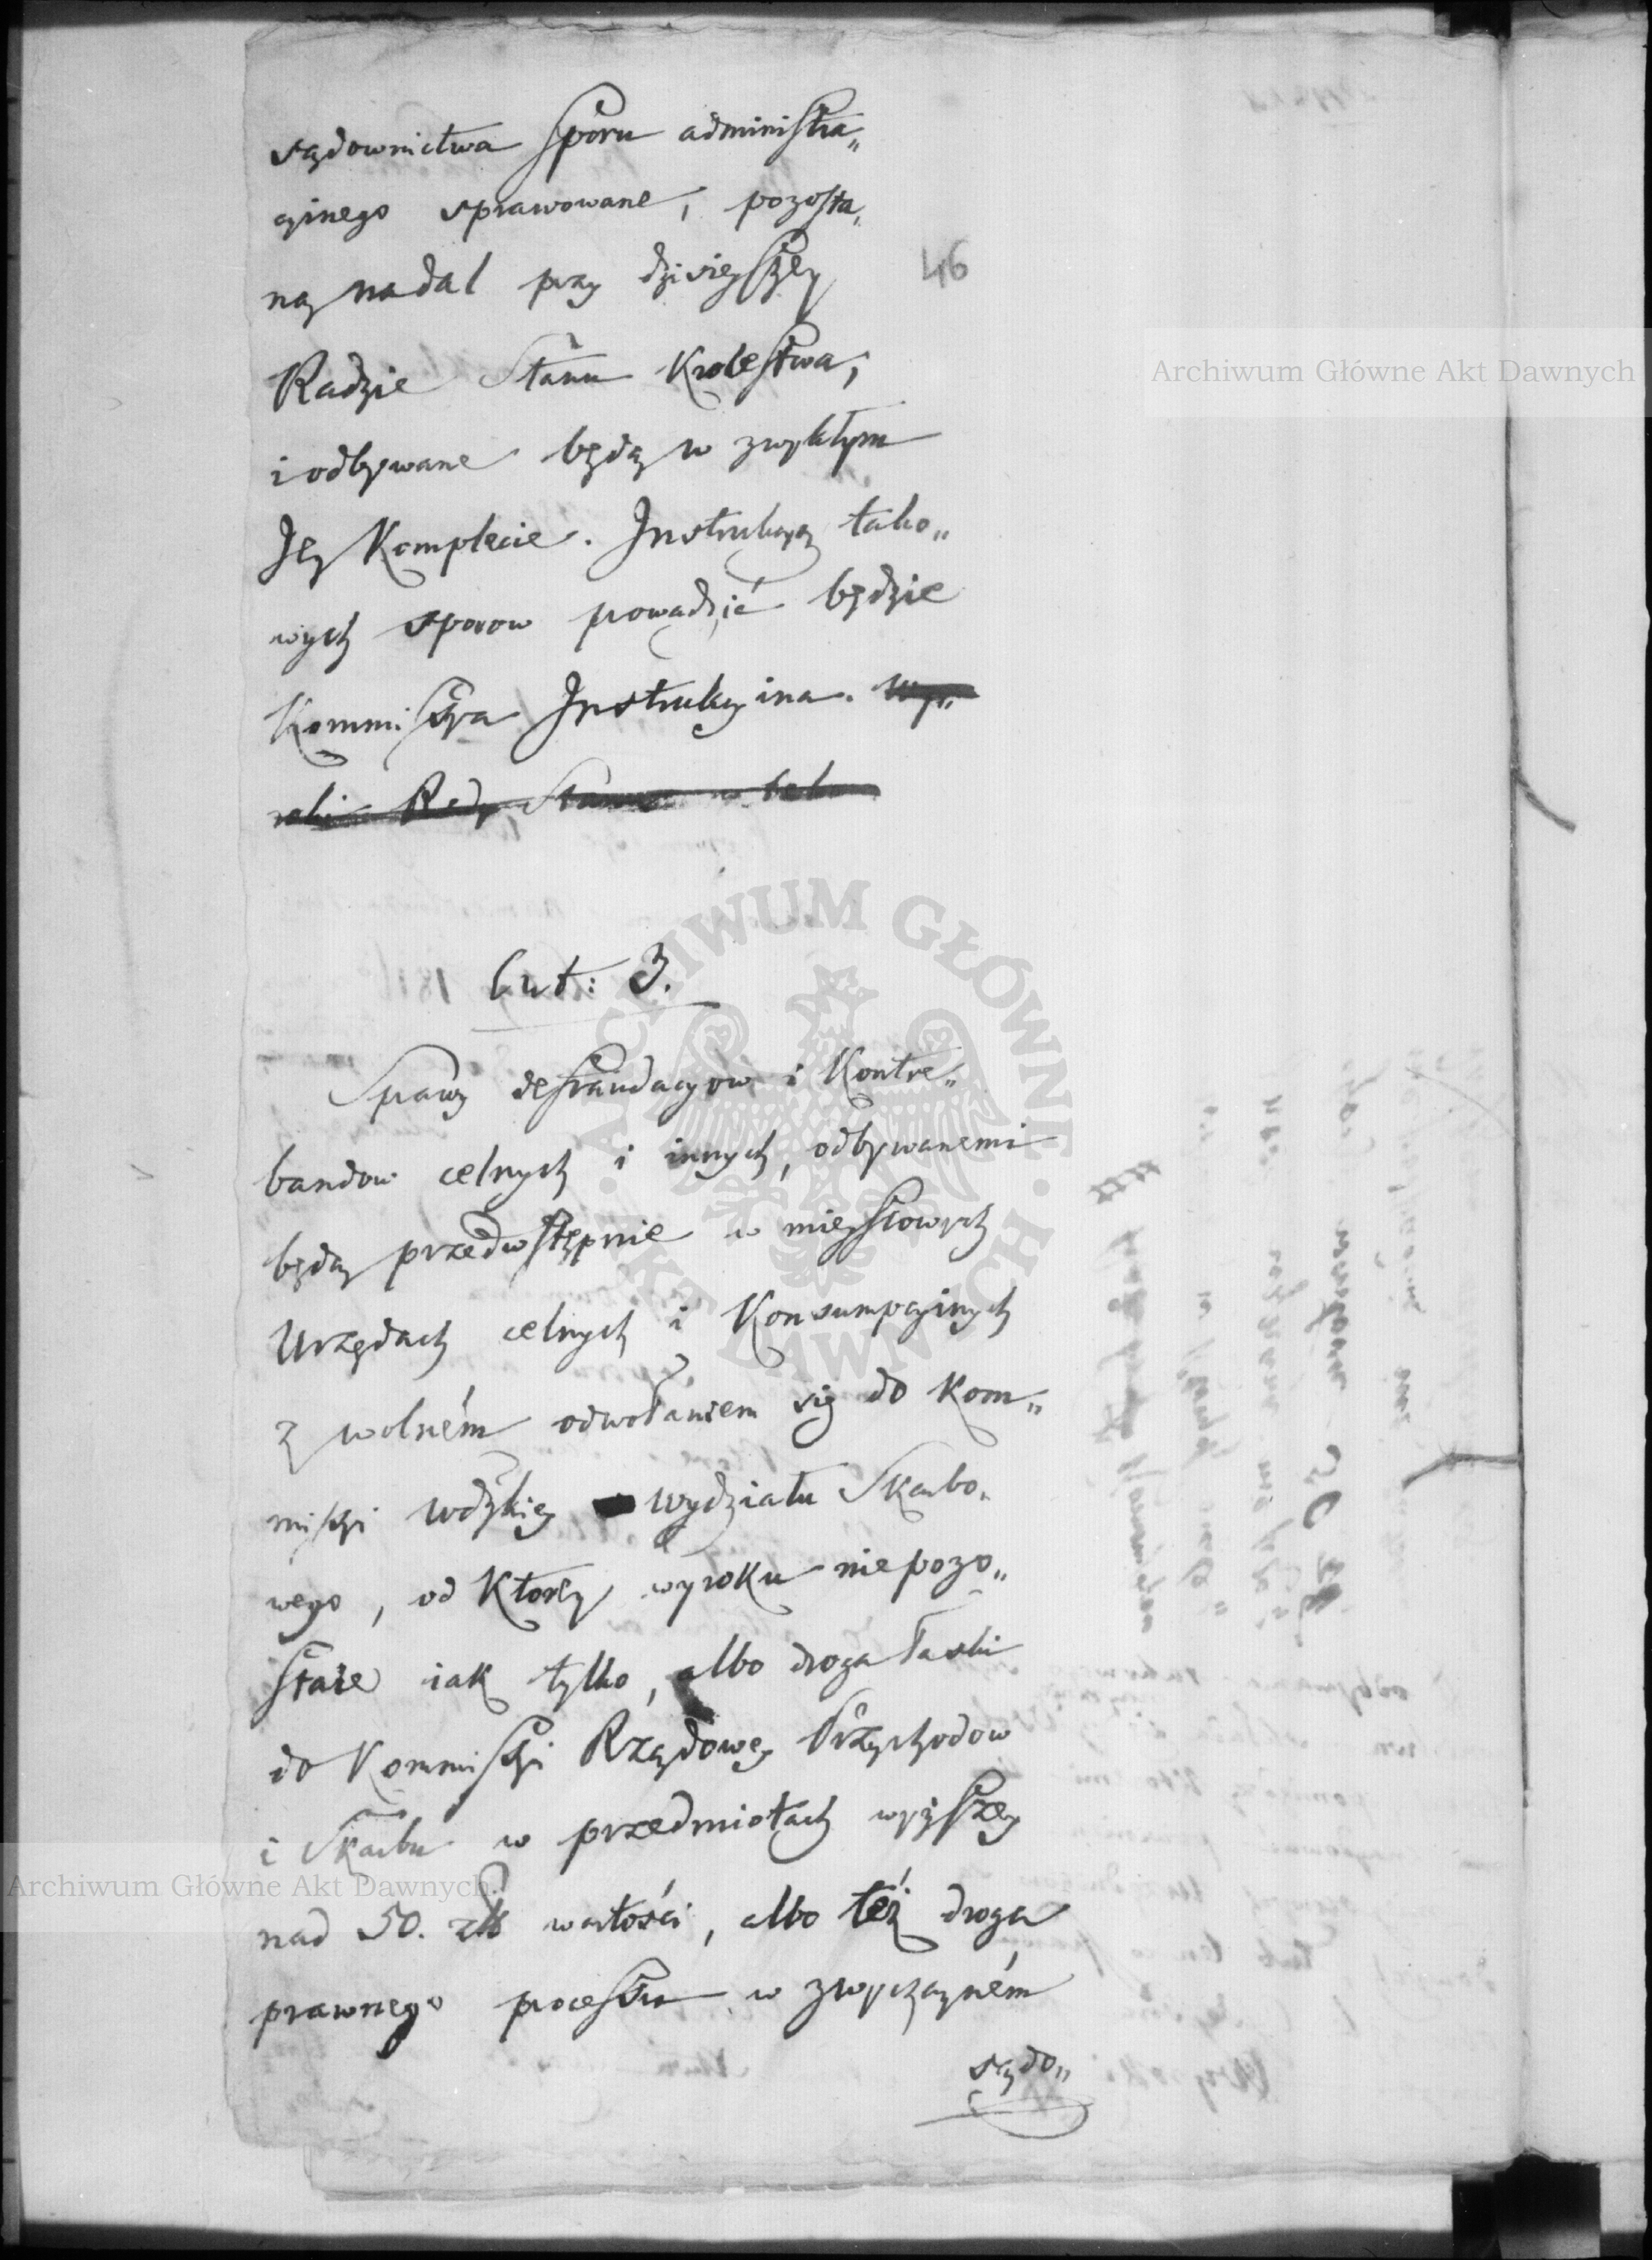 sądownictwa Sporu administra„
cyinego sprawowane, pozosta„
ną nadal przy dzisieyszey
Radzie Stanu Krolestwa,
i odbywane będą w zwykłym
Jey Komplecie. Instrukcyą tako„
wych sporow prowadzić będzie
Kommissya Instrukcyina. Wy„
roki Rady Stanu w
46
Art: 3.
Sprawy defraudacyow i Kontre„
bandow celnych i innych, odbywanemi
będą przedwstępnie w mieyscowych
Urzędach celnych i Konsumpcyinych
z wolném odwołaniem się do Kom„
missyi Wdzkiey Wydziału Skarbo„
wego, od Ktorey wyroku niepozo„
staie iak tylko, albo droga łaski
do Kommissyi Rządowey Przychodow
i Skarbu w przedmiotach wyższey
nad 50. zł wartości, albo też droga
prawnego processu w zwyczayném
sądo„
Archiwum Główne Akt Dawnych
Archiwum Główne Akt Dawnych
ARCHIWUM GŁÓWNE AKT DAWNYCH